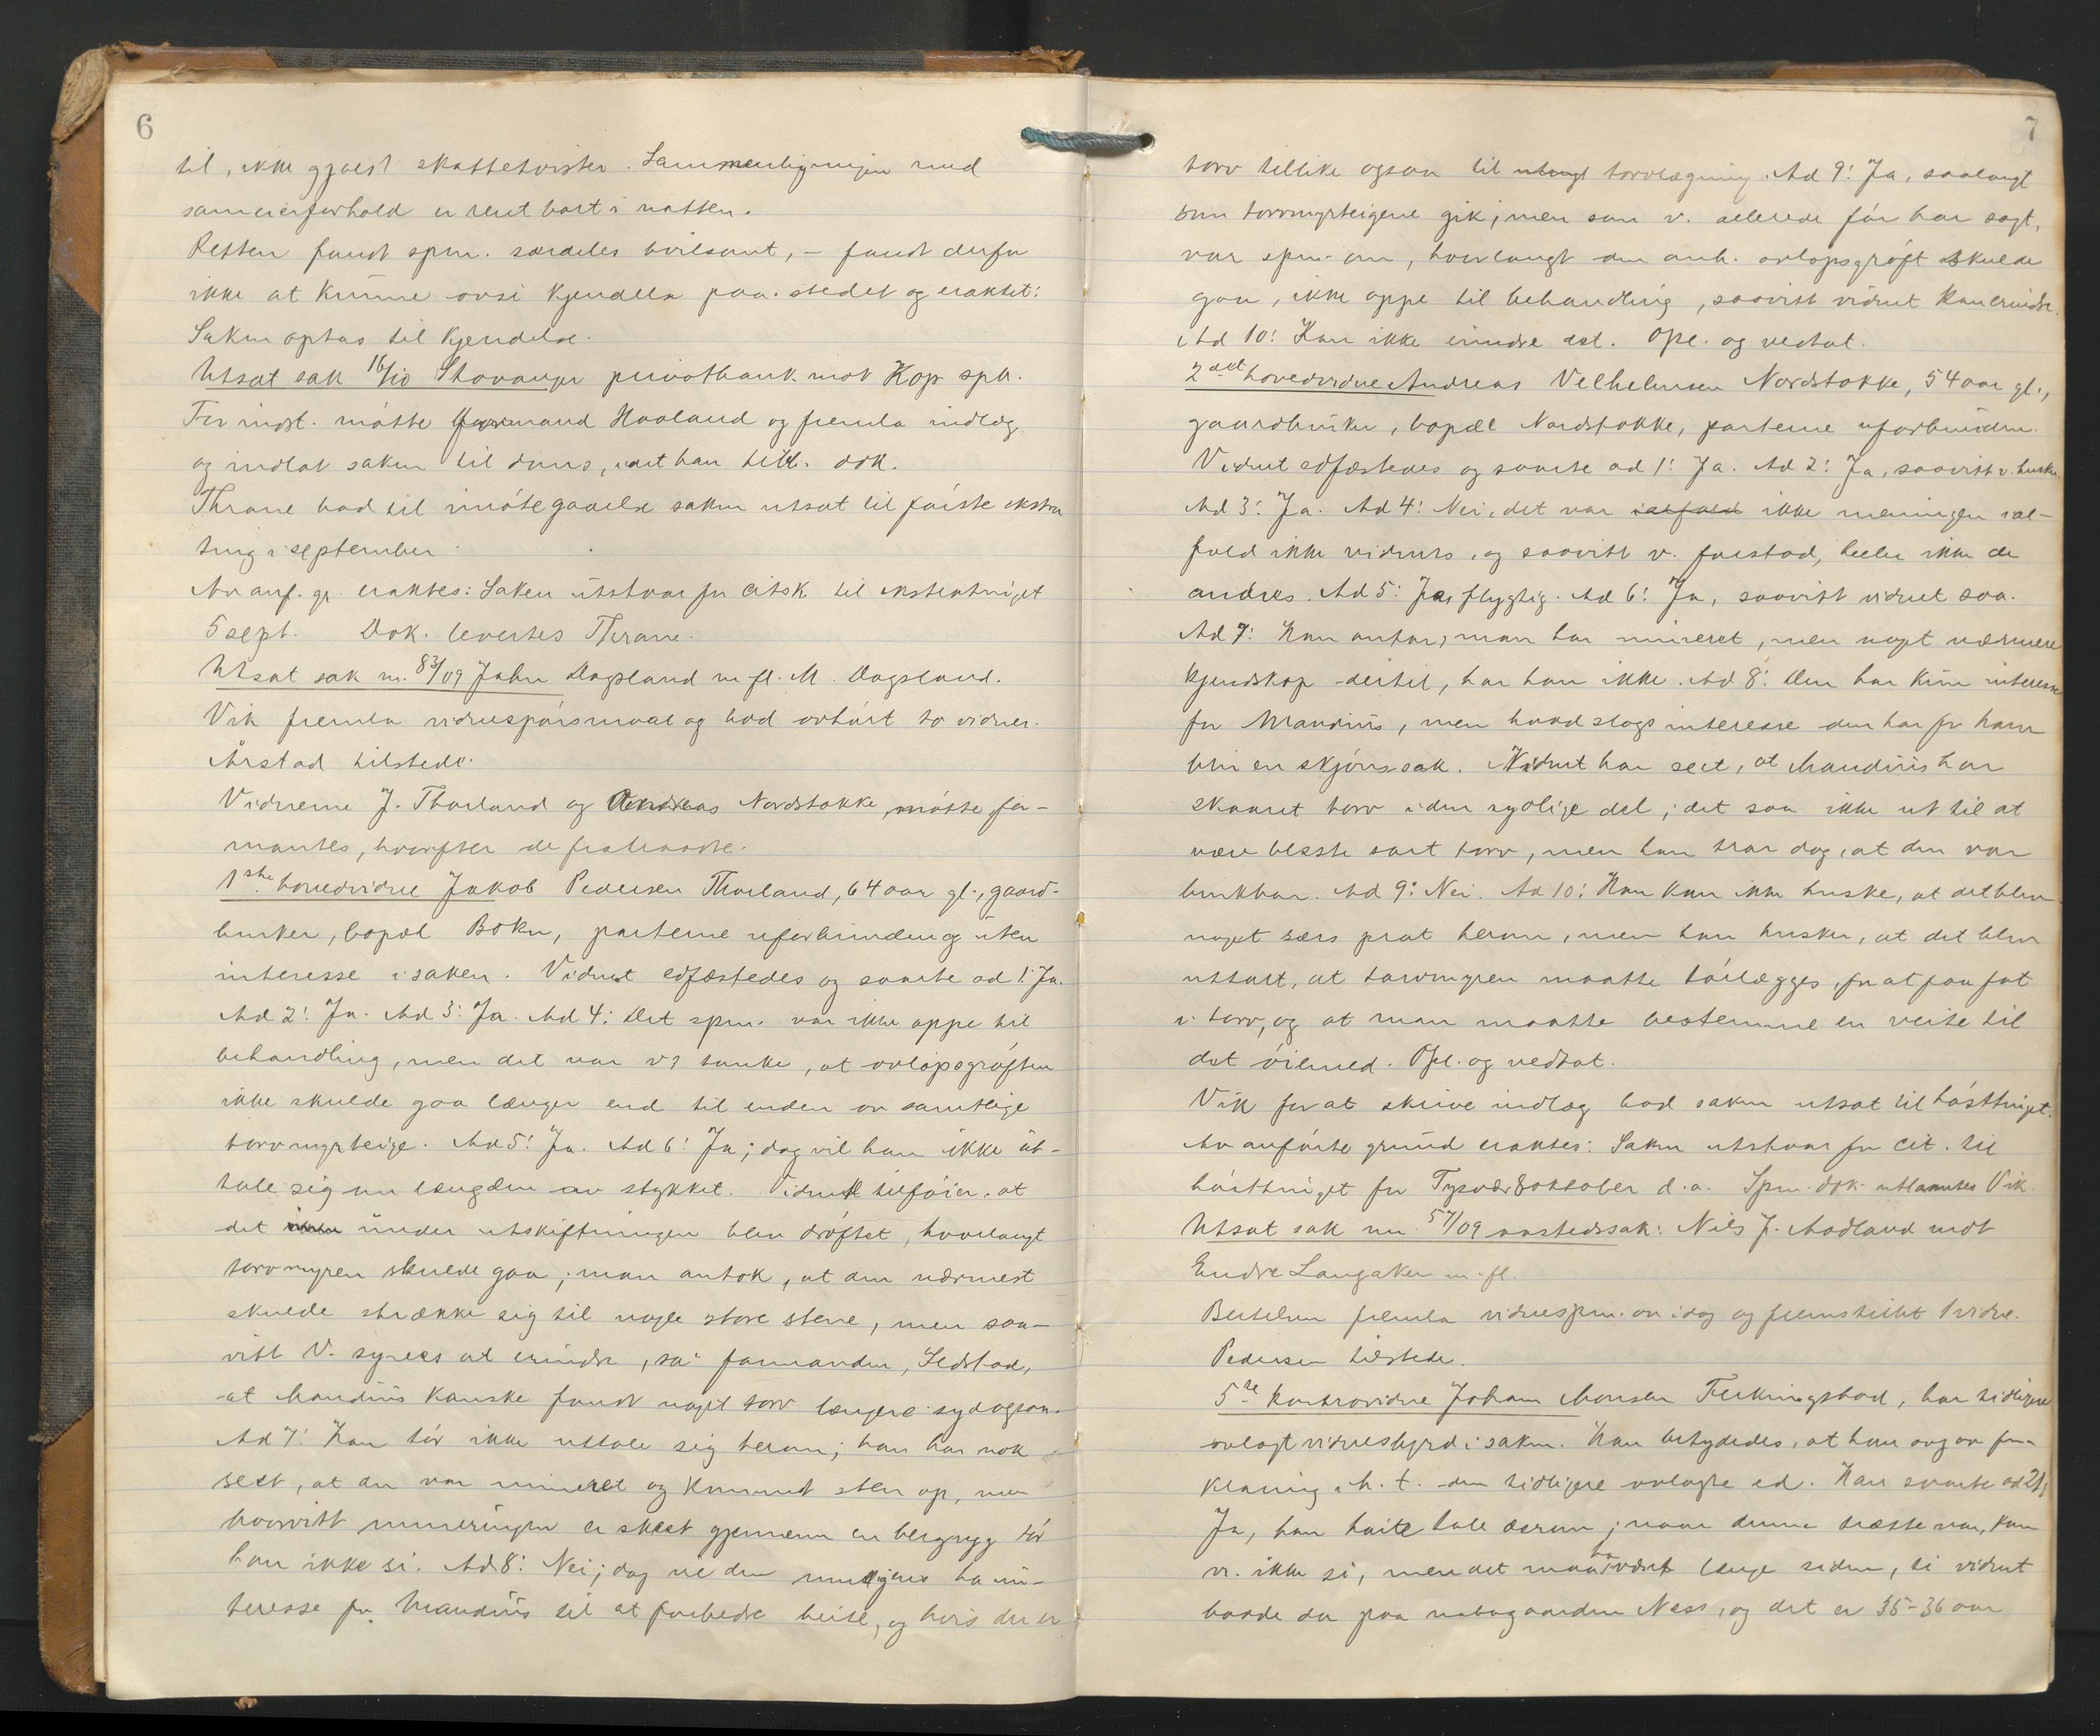 6
til, ikke gjort skattetvister. Sammenligningen med
sameierforhold er rent bort i natten.
Retten fandt spm. særdeles tvilsomt, - fandt derfor
ikke at kunne avsi kjendelse paa stedet og eraktet:
Saken optas til kjendelse.
Utsat sak 16/10 Stavanger privatbank mot Hop spk.
For indst. møtte formand Haaland og fremla indlæg
og indlot saken til doms, idet han till. dok.
Thrane bad til imøtegaaelse saken utsat til første ekstra
ting i september.
Av anf. gr. eraktes: Saken utstaar for citsk. til ekstratinget
5 sept. Dok. levertes Thrane.
Utsat sak nr. 83/09 John Dagsland m fl. M. Dagsland.
Vik fremla vidnespørsmaal og bad avhørt to vidner.
Årstad tilstede.
Vidnerne J. Thorland og Andreas Nordstokke møtte, for-
mantes, hvorefter de fratraadte.
1ste hovedvidne Jakob Pedersen Thorland, 64 aar gl., gaard-
bruker, bopæl Bokn, parterne uforbunden og uten
interesse i saken. Vidnet edfæstedes og svarte ad 1: Ja.
Ad 2: Ja. Ad 3: Ja. Ad 4: Det spm. var ikke oppe til
behandling, men det var v's tanke, at avløpsgrøften
ikke skulde gaa længer end til enden av samtlige
torvmyrteige. Ad 5: Ja. Ad 6: Ja; dog vil han ikke ut-
tale sig om længden av stykket. Vidnet tilføier, at
det under utskiftningen blev drøftet, hvorlangt
torvmyren skulde gaa; man antok, at den nærmest
skulde strække sig til nogle store stene, men saa-
vitt v. synes at erindre, sa formanden, Sedstad,
at Maudius kanske fandt noget torv længere syd ogsaa.
Ad 7: Han tør ikke uttale sig herom; han har nok
seet, at der var mineret og kommet sten op, men
hvorvitt mineringen er skeet gjennem en bergryg tør
han ikke si. Ad 8: Nei; dog vil den muligens ha in-
teresse for Maudius til at forbedre beite, og hvis der er
7
torv tillike ogsaa til torvtægning. Ad 9: Ja, saalangt
som torvmyrteigene gik; men som v. allerede før har sagt,
var spm. om, hvorlangt den anh. avløpsgrøft skulde
gaa, ikke oppe til behandling, saavitt vidnet kan erindre.
Ad 10: Kan ikke erindre det. Opl. og vedtat.
2det hovedvidne Andreas Velhelmsen Nordstokke, 54 aar gl.,
gaardbruker, bopæl Nordstokke, parterne uforbunden.
Vidnet edfæstedes og svarte ad 1: Ja. Ad 2: Ja, saavitt v. husker.
Ad 3: Ja. Ad 4: Nei, det var ialfald ikke meningen ial-
fald ikke vidnets, og saavitt v. forstod, heller ikke de
andres. Ad 5: Ja, flygtig. Ad 6: Ja, saavitt vidnet saa.
Ad 7: Han antar, man har mineret, men noget nærmere
kjendskap dertil, har han ikke. Ad 8: Den har kun interesse
for Maudius, men hvad slags interesse den har for ham
blir en skjønssak. Vidnet har seet, at Maudius har
skaaret torv i den sydlige del; det saa ikke ut til at
være beste sort torv, men han tror dog, at den var
brukbar. Ad 9: Nei. Ad 10: Han kan ikke huske, at det blev
noget særs prat herom, men han husker, at det blev
uttalt, at torvmyren maatte tørlægges, for at faa fat
i torv, og at man maatte bestemme en veite til
det øiemed. Opl. og vedtat.
Vik for at skrive indlæg bad saken utsat til høsttinget.
Av anførte grund eraktes: Saken utstaar for cit. til
høsttinget for Tysvær 8 oktober d.a. Spm. dok. utlaantes Vik.
Utsat sak nr. 57/09 aastedssak: Nils J. Aadland mot
Endre Langaker m. fl.
Bertelsen fremla vidnespm. av idag og fremstillet 1 vidne.
Pedersen tilstede.
5te kontravidne Johan Monsen Ferkingstad, har tidligere
avlagt vidnesbyrd i saken. Han betydedes, at han avgav for-
klaring i h. t. den tidligere avlagte ed. Han svarte ad 21:
Ja, han hørte tale derom; naar denne trætte var, kan
v. ikke si, men det maa ha været længe siden, ti vidnet
bodde da paa nabogaarden Ness, og det er 35-36 aar